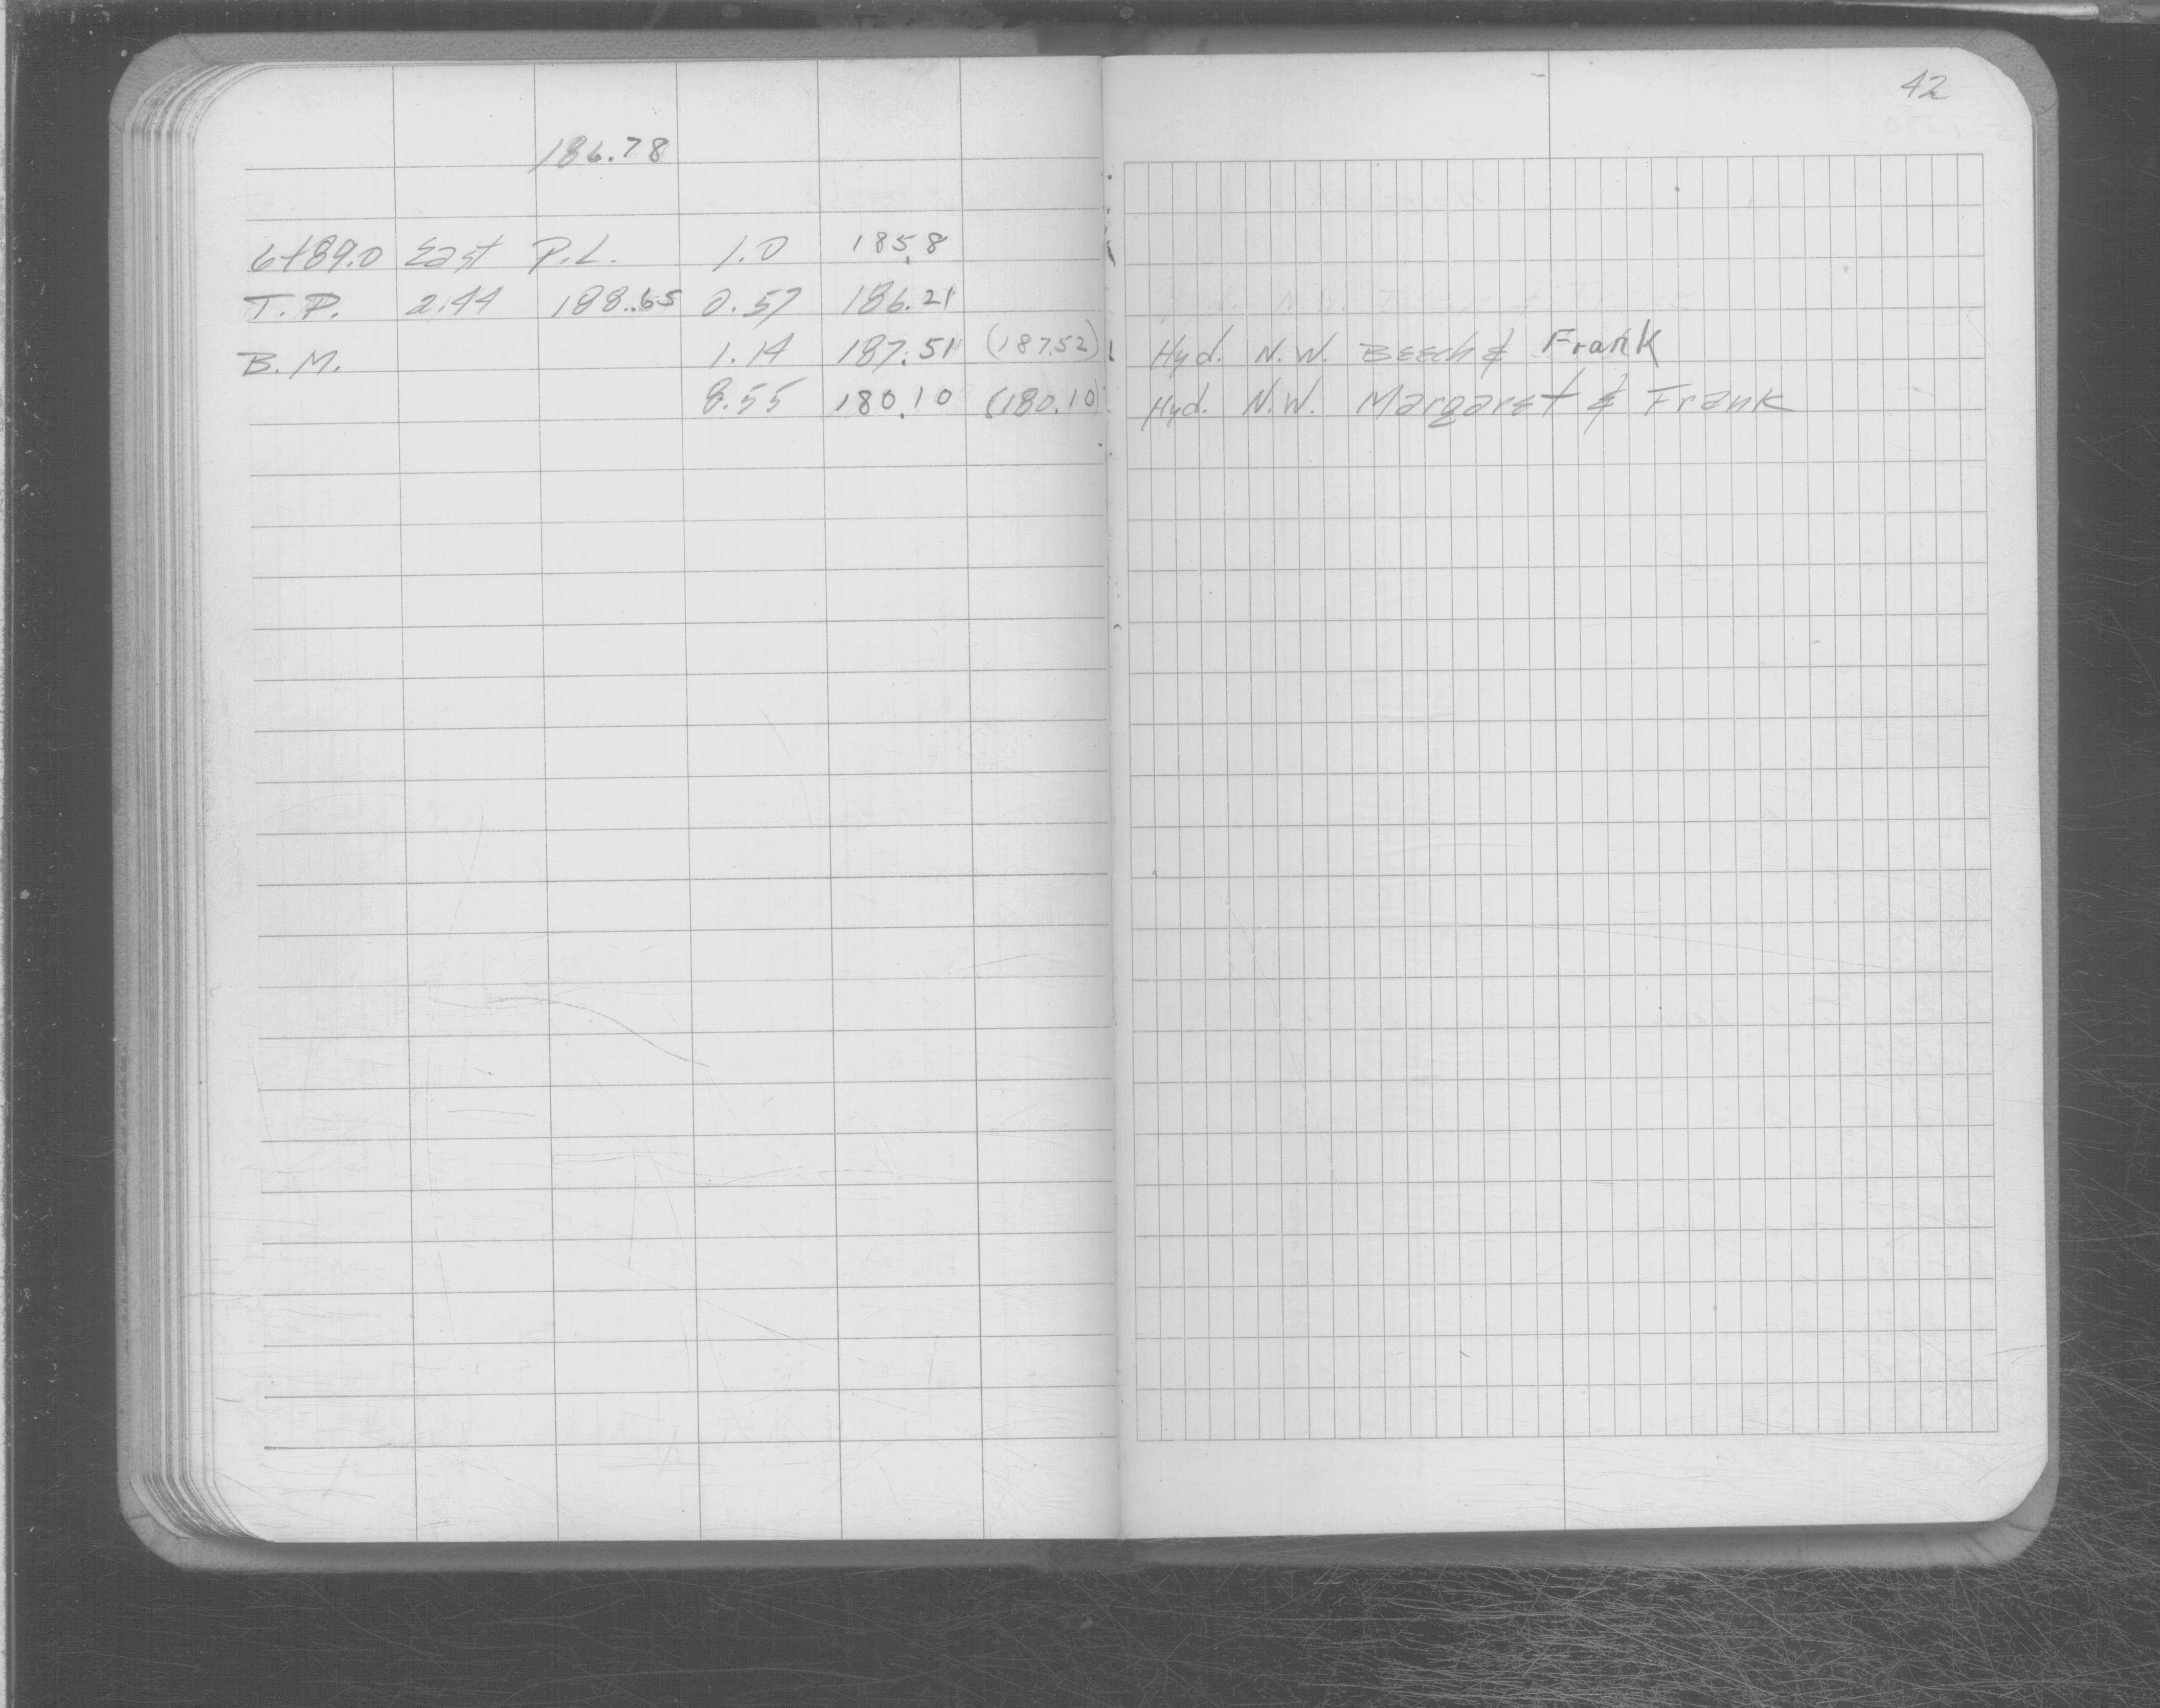 42
186.78
6+89.0 East P.L. 1.0 185.8
T.P. 2.44 188.65 0.57 186.21
B.M. 1.14 187.51 (187.52) Hyd. N.W. Beech & Frank
8.55 180.10 (180.10) Hyd. N.W. Margaret & Frank